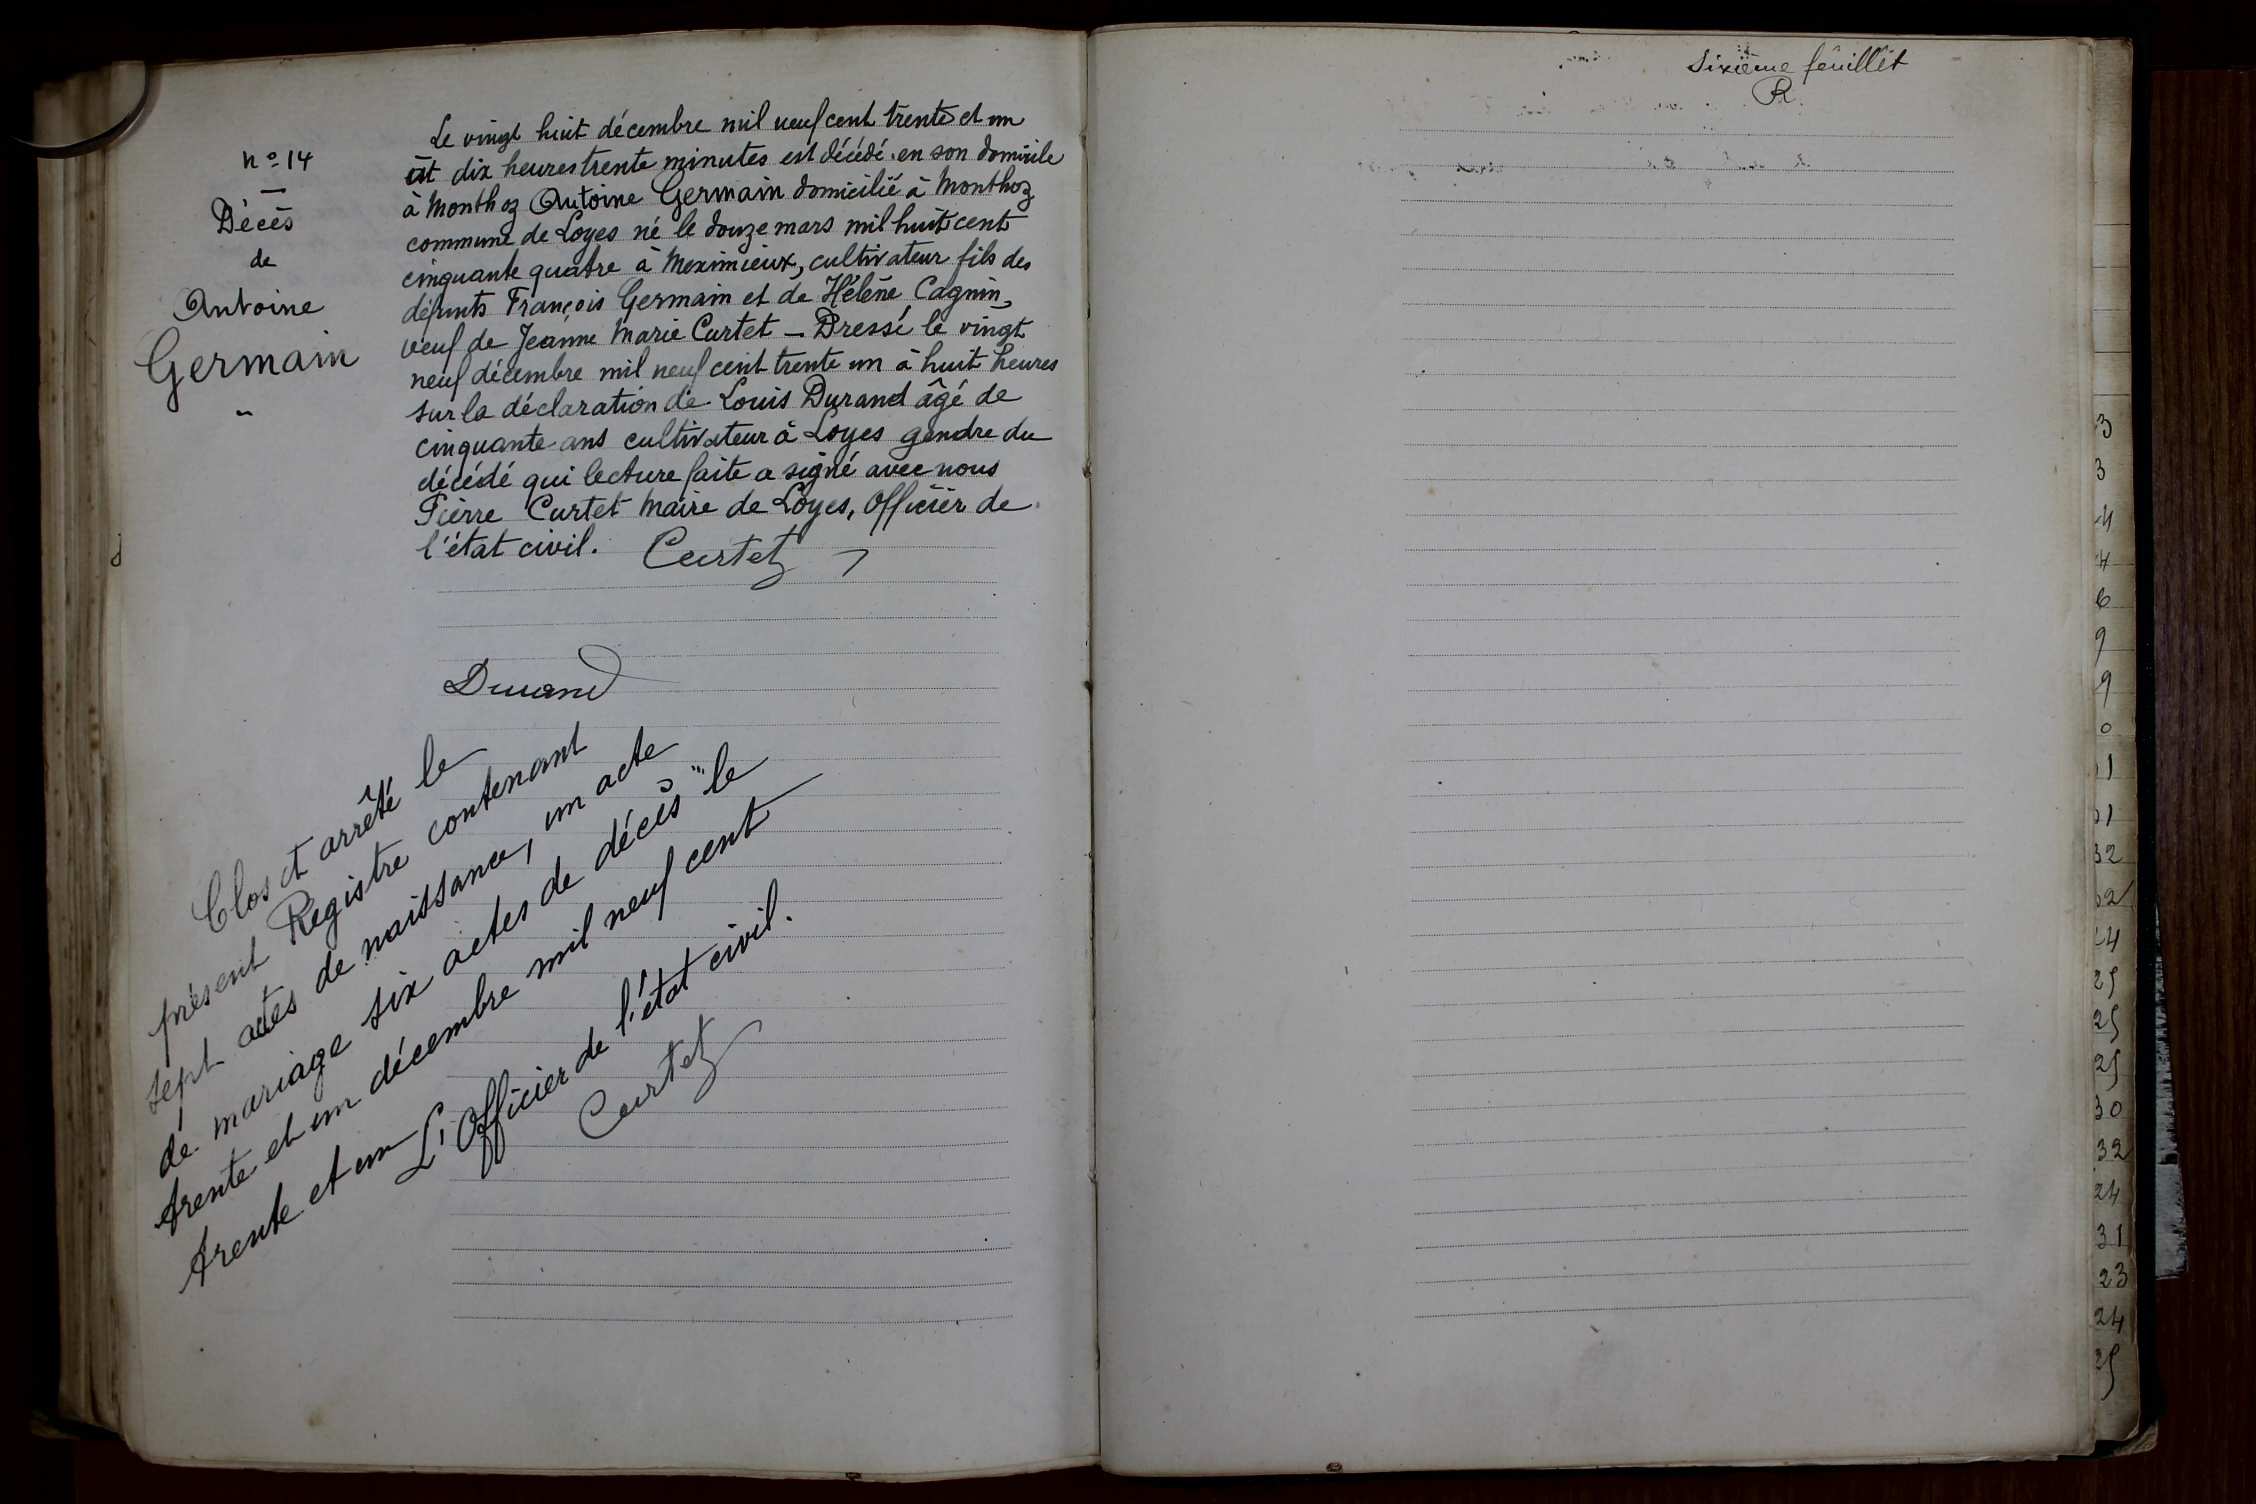 n° 14
Décès
de
Antoine
Germain
Le vingt huit décembre mil neuf cent trente et un
dix heures trente minutes est décédé en son domicile
à Monthoz Antoine Germain domicilié à Monthoz
commune de Loyes né le douze mars mil huit cent
cinquante quatre à Meximieux, cultivateur fils des
défunts François Germain et de Hélène Cagnin,
veuf de Jeanne Marie Curtet _ Dressé le vingt
neuf décembre mil neuf cent trente un à huit heures
sur la déclaration de Louis Durand âgé de
cinquante ans cultivateur à Loyes gendre du
décédé qui lecture faite a signé avec nous
Pierre Curtet Maire de Loyes, Officier de
l'état civil. Curtet
Durand
Clos et arrêté le
présent Registre contenant
sept actes de naissance, un acte
de mariage six actes de décès le
trente et un décembre mil neuf cent
trente et un
L'Officier de l'état civil.
Curtet
Sixième feuillet
R
3
3
4
4
6
9
9
0
1
1
32
2
4
25
25
25
30
32
24
31
23
24
25